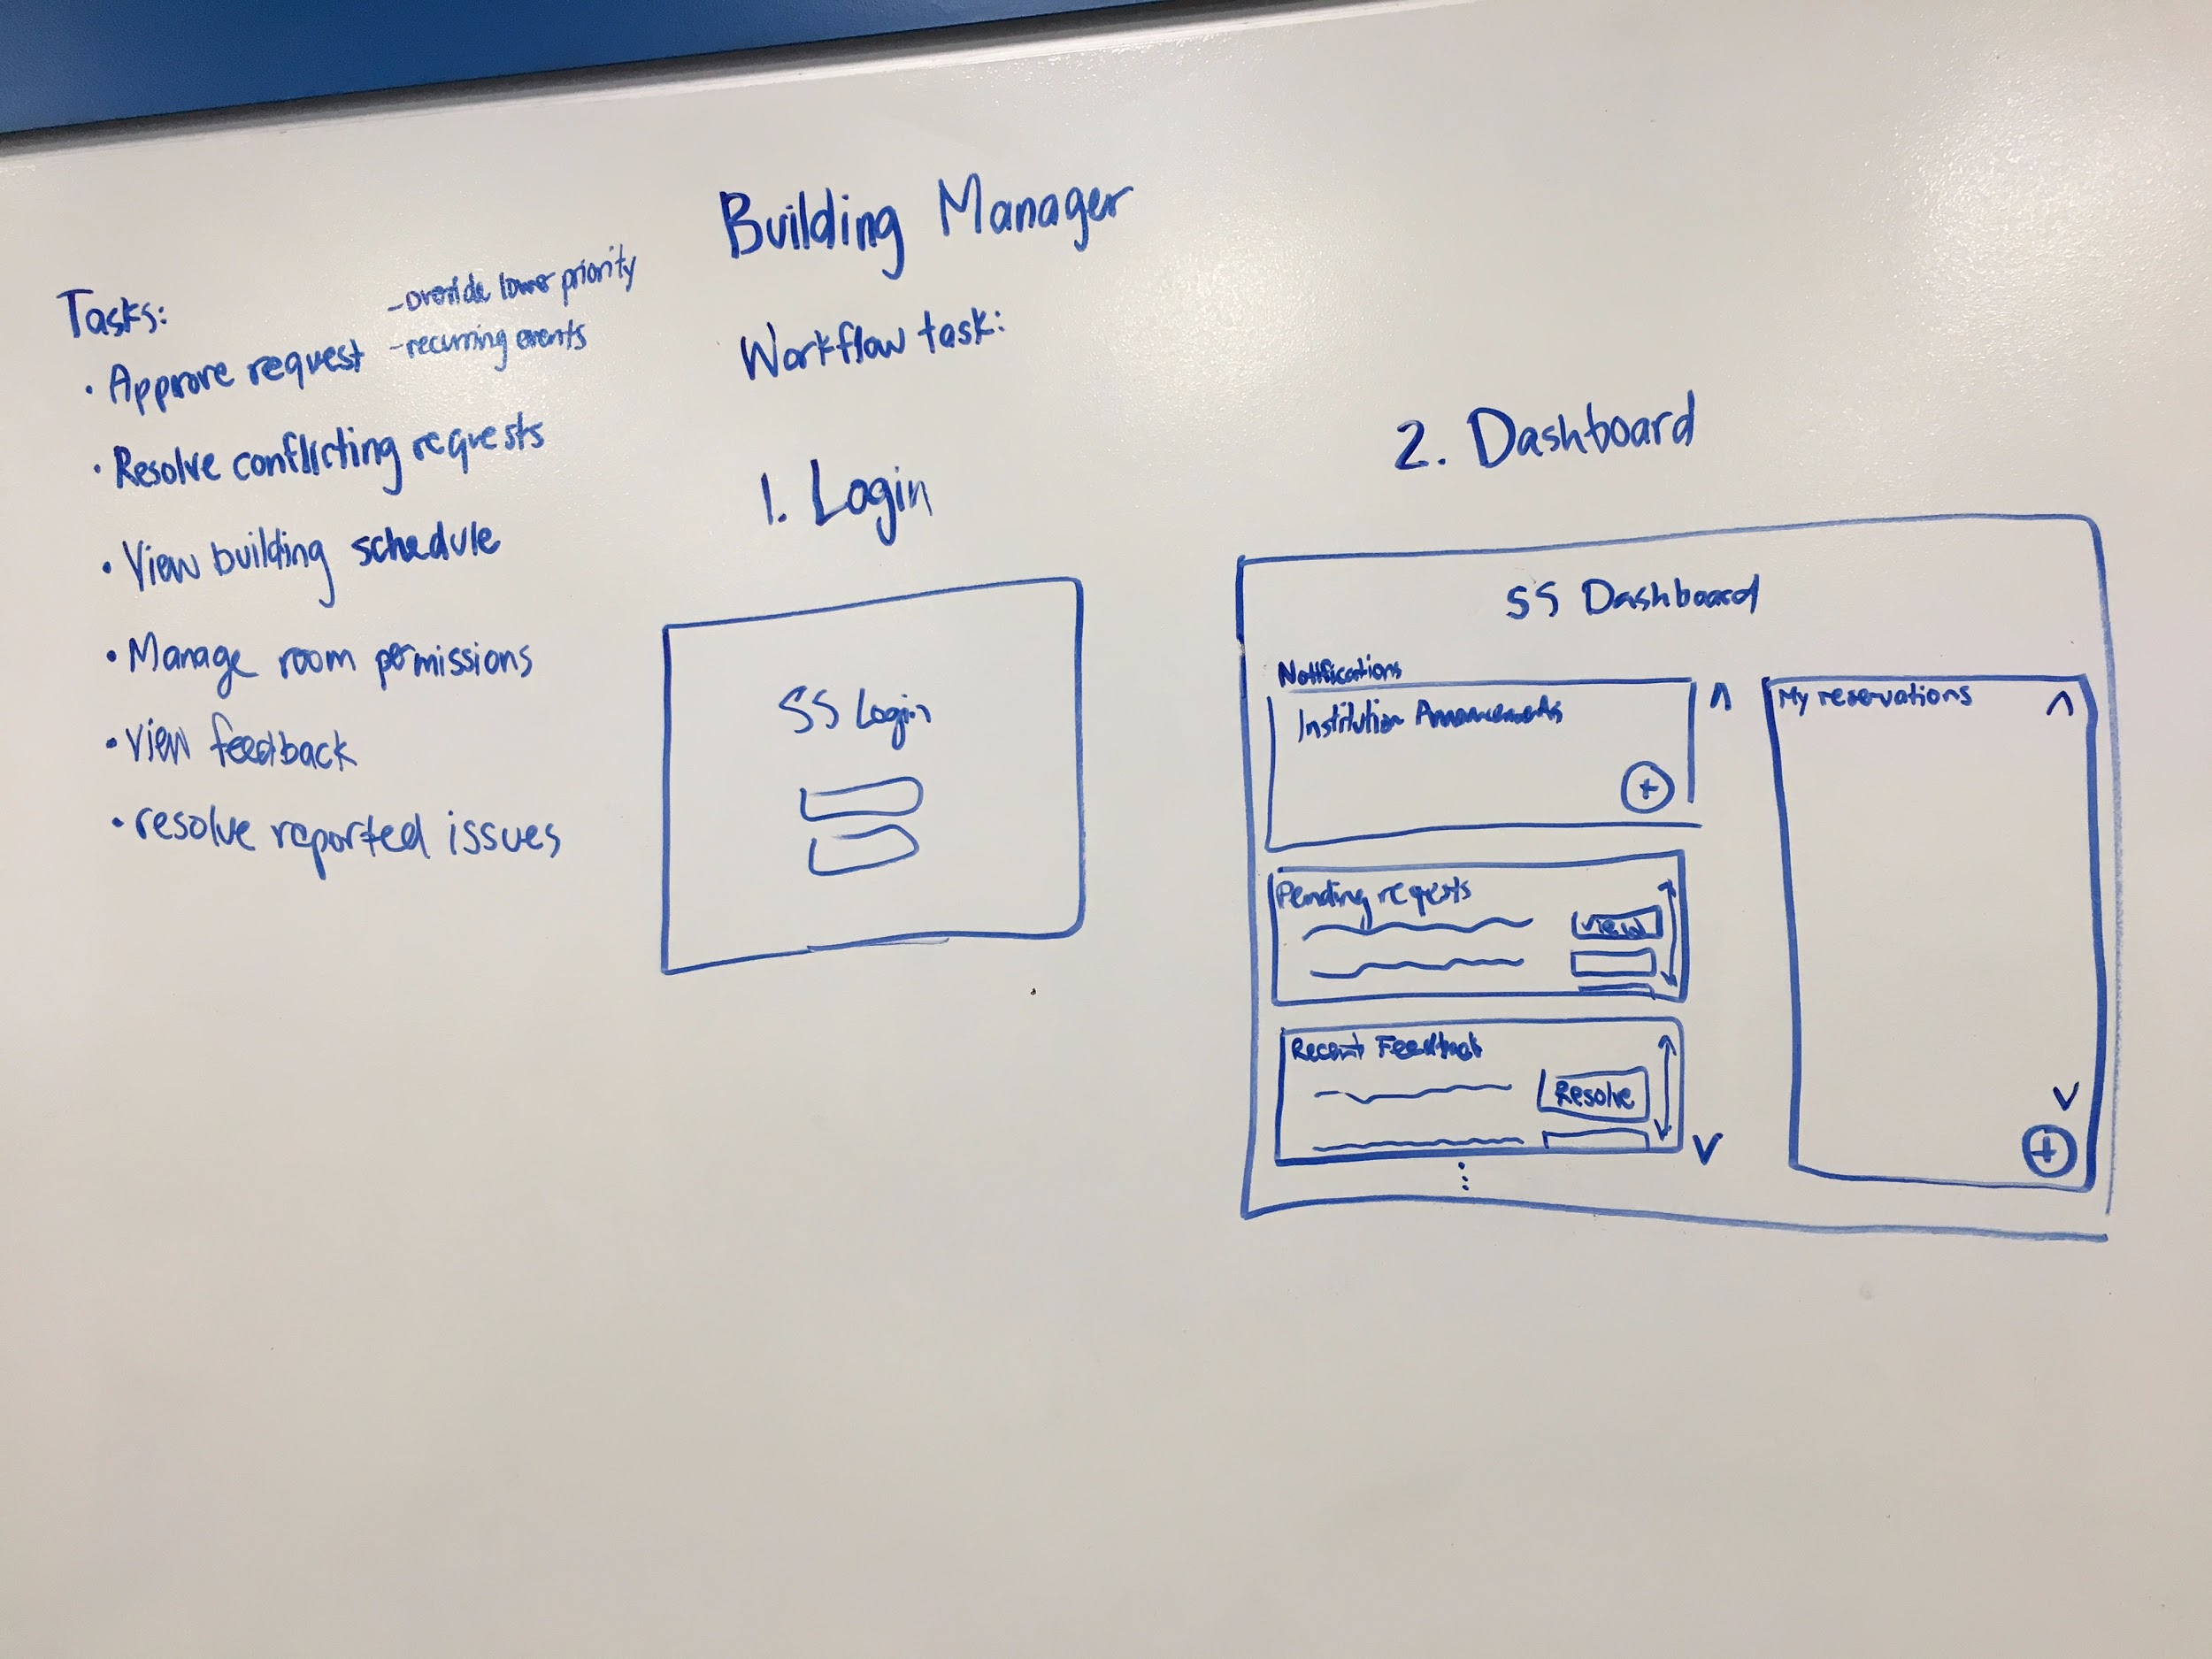 Building Manager
Tasks:
- override lower priority
• Approve request - recurring events
• Resolve conflicting requests
• View building schedule
• Manage room permissions
• View feedback
• resolve reported issues
Workflow task:
1. Login
SS Login
2. Dashboard
SS Dashboard
Notifications
Institution Announcements
+
Pending requests
view
Recent Feedback
Resolve
My reservations
+